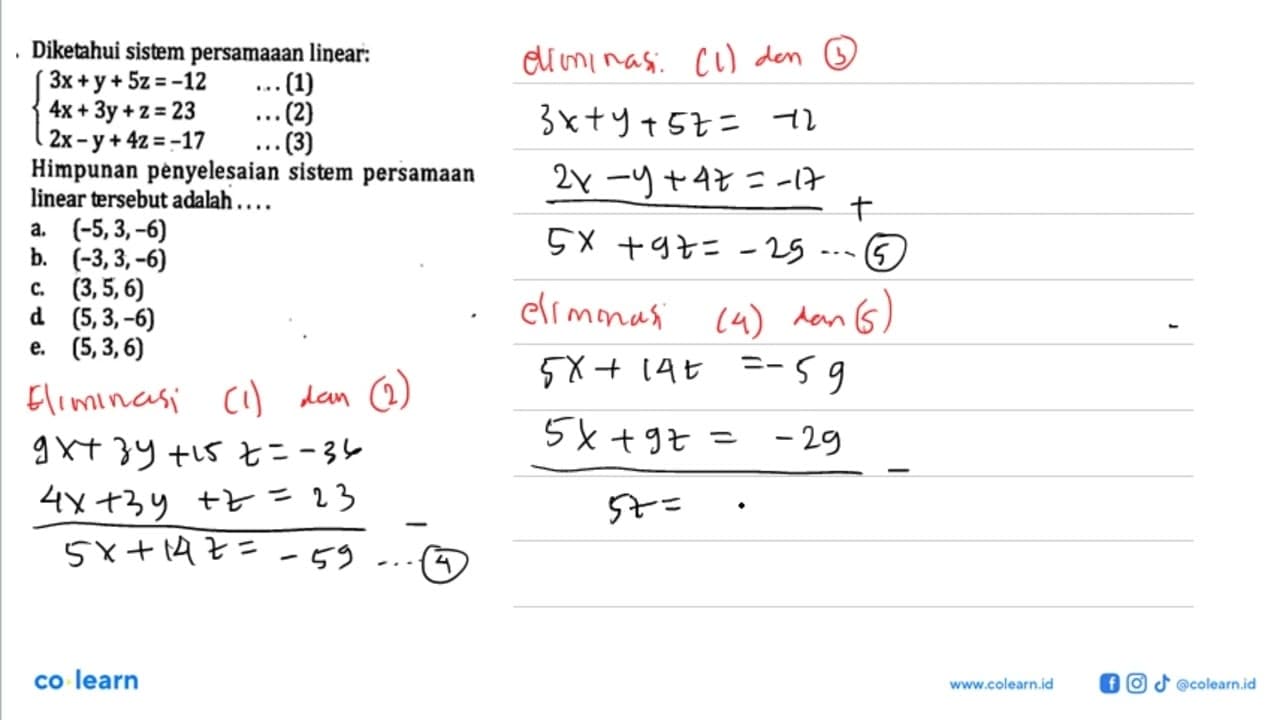 . Diketahui sistem persamaaan linear:
3x + y + 5z = –12 ... (1)
4x + 3y + z = 23 ... (2)
2x – y + 4z = –17 ... (3)
Himpunan penyelesaian sistem persamaan
linear tersebut adalah ....
a. (–5, 3, –6)
b. (–3, 3, –6)
c. (3, 5, 6)
d (5, 3, –6)
e. (5, 3, 6)
Eliminasi (1) dan (2)
9x + 3y + 15 z = - 36
4x + 3y + z = 23
-
5x + 14 z = - 59 ... (4)
eliminasi. (1) dan (3)
3x + y + 5z = -12
2x - y + 4z = -17
+
5x + 9z = - 29 ... (5)
eliminasi (4) dan (5)
5x + 14z = - 59
5x + 9z = - 29
-
5z =
co learn
www.colearn.id
@colearn.id